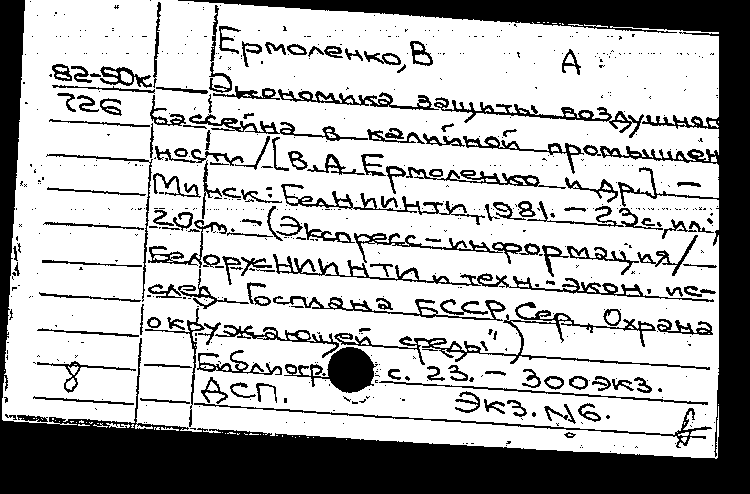 Ермоленко, В А
82-50к Экономика защиты воздушног
726 бассейна в калийной промышлен
ности / [В.А. Ермоленко и др.]. –
Минск: БелНИИНТИ, 1981. – 23с., ил.;
20см. – (Экспресс-информация /
БелорусНИИНТИ и техн.-экон. ис-
след. Госплана БССР. Сер. „Охрана
окружающей среды")
Библиогр. с. 23. – 300экз.
8 ДСП. Экз. N6.